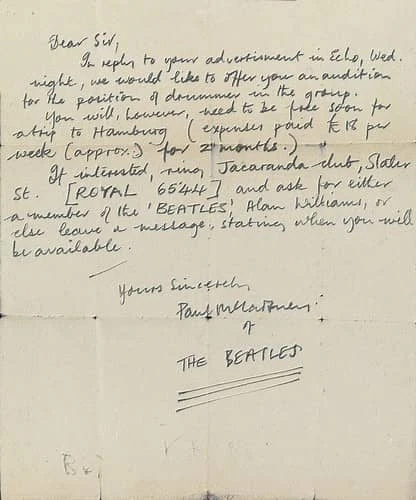 Dear Sir,
In reply to your advertisment in Echo, Wed.
night, we would like to offer you an audition
for the position of drummer in the group.
You will, however, need to be free soon for
a trip to Hamburg (expenses paid £18 per
week (approx.) for 2 months.)
If interested, ring Jacaranda club, Slater
St. [ROYAL 6544] and ask for either
a member of the 'BEATLES', Alan Williams, or
else leave a message, stating when you will
be available.
Yours Sincerely
Paul McCartney
of
THE BEATLES